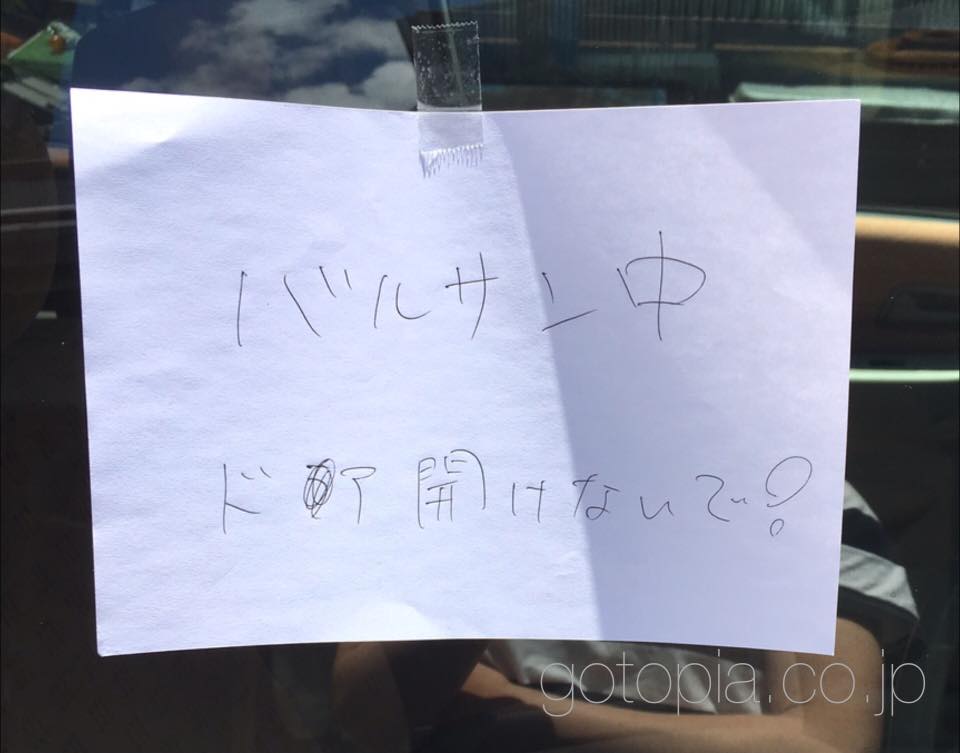 バルサン中
ドア開けないで!
gotopia.co.jp